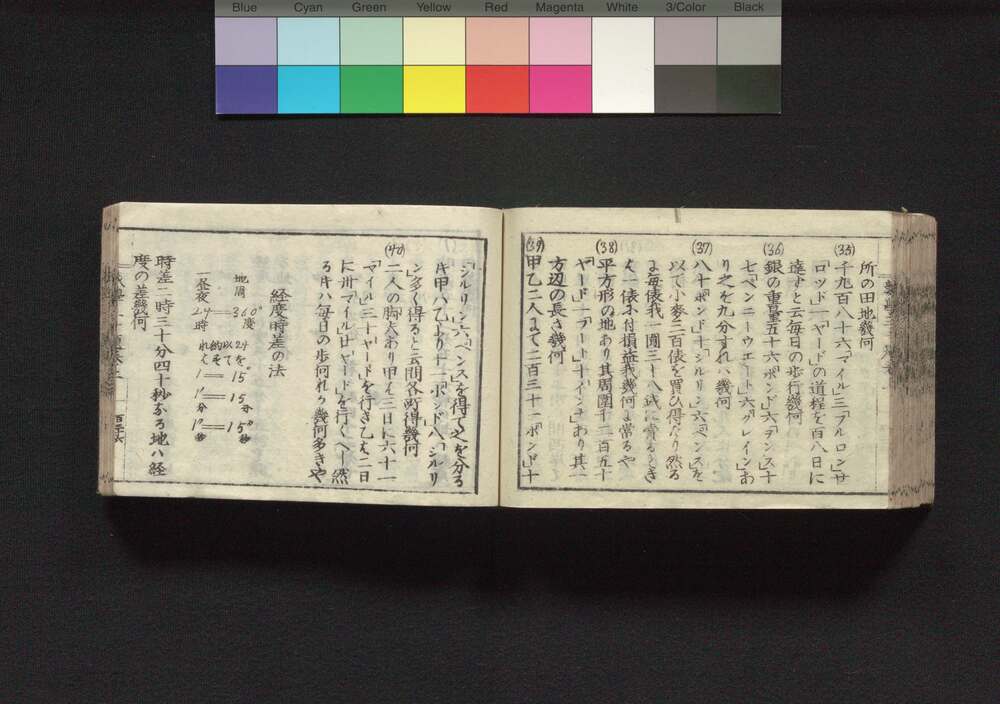 Blue Cyan Green Yellow Red Magenta White 3/Color Black
所の田地幾何
(35) 千九百八十六「マイル」三「フルロン」廿
「ロッド」一「ヤード」の道程を百八日に
遠すと云毎日の歩行幾何
(36) 銀の重量五十六「ポンド」六「ヲンス」十
七「ペンニーウエート」六「グレイン」あ
り之を九分すれハ幾何
(37) 八十「ポンド」十「シルリン」六「ペンス」を
以て小麥三百俵を買ひ得たり然る
に毎俵我一圓三十八錢に當るとき
ハ一俵に付損益我幾何に當るや
(38) 平方形の地あり其周圍千二百五十
「ヤード」一「フート」十「インチ」あり其一
方辺の長さ幾何
(39) 甲乙二人にて二百三十一「ポンド」十
「シルリン」六「ペンス」を得て之を分る
キ甲ハ乙より十一「ポンド」八「シルリ
ン」多く得ると云問各所得幾何
(40) 二人の脚夫あり甲ハ二日に六十一
「マイル」三十「ヤード」を行き乙ハ二日
に卅「マイル」廿「ヤード」を行くべし然
るキハ毎日の歩何れか幾何多きや
経度時差の法
地周 360°度
一昼夜 24時
24を以て約すれハ
1 15°
1'分 15'分
1"秒 15"秒
時差二時三十分四十秒なる地ハ経
度の差幾何